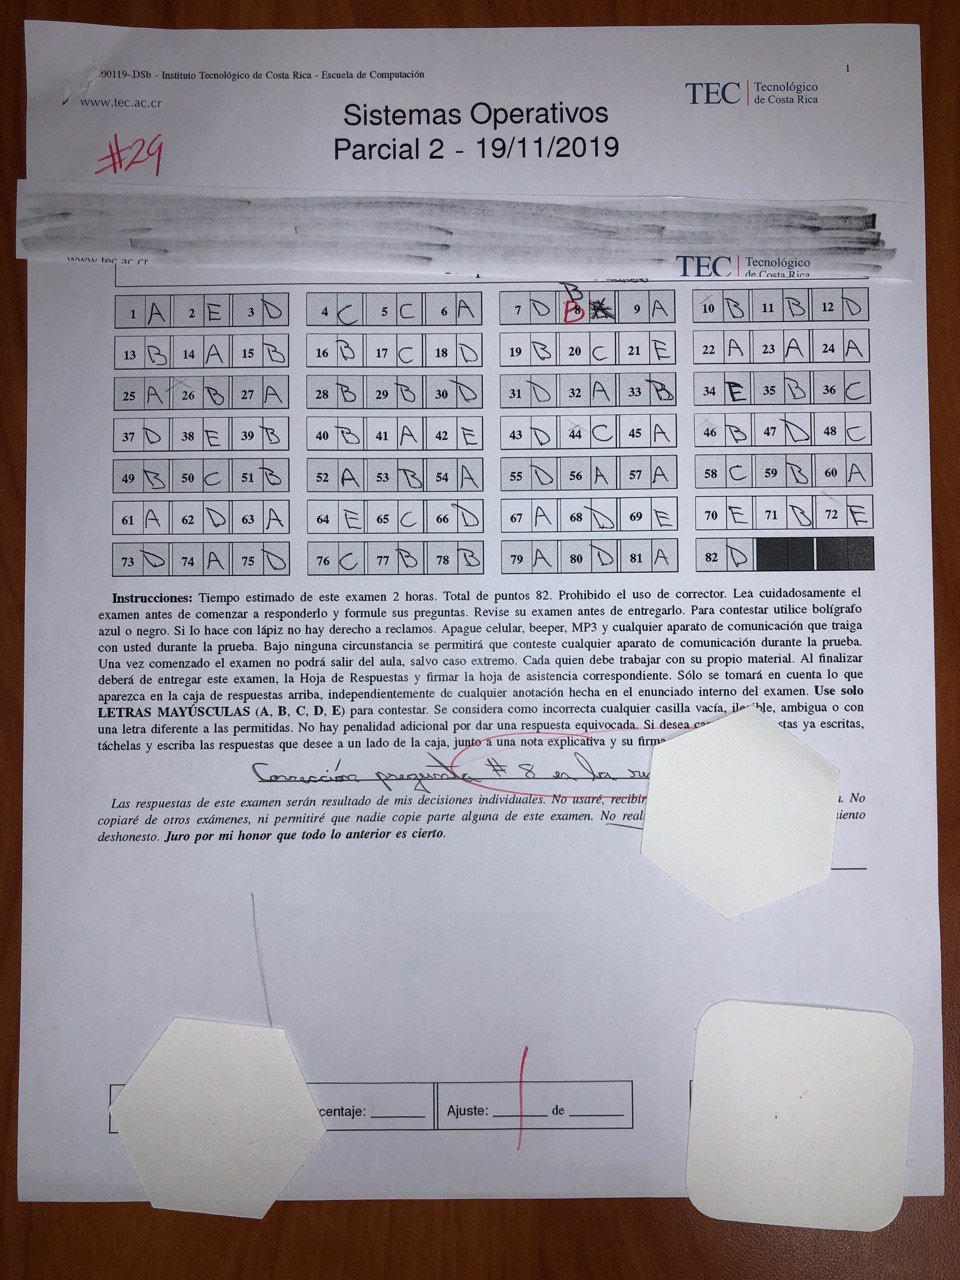 00119-.DSb - Instituto Tecnológico de Costa Rica - Escuela de Computación
1
www.tec.ac.cr
TEC Tecnológico
de Costa Rica
Sistemas Operativos
Parcial 2 - 19/11/2019
#29
www.tec.ac.cr
TEC Tecnológico
de Costa Rica
B
1 A 2 E 3 D 4 C 5 C 6 A 7 D B 8 9 A 10 B 11 B 12 D
13 B 14 A 15 B 16 B 17 C 18 D 19 B 20 C 21 E 22 A 23 A 24 A
25 A 26 B 27 A 28 B 29 B 30 D 31 D 32 A 33 B 34 E 35 B 36 C
37 D 38 E 39 B 40 B 41 A 42 E 43 D 44 C 45 A 46 B 47 D 48 C
49 B 50 C 51 B 52 A 53 B 54 A 55 D 56 A 57 A 58 C 59 B 60 A
61 A 62 D 63 A 64 E 65 C 66 D 67 A 68 D 69 E 70 E 71 B 72 E
73 D 74 A 75 D 76 C 77 B 78 B 79 A 80 D 81 A 82 D
Instrucciones: Tiempo estimado de este examen 2 horas. Total de puntos 82. Prohibido el uso de corrector. Lea cuidadosamente el
examen antes de comenzar a responderlo y formule sus preguntas. Revise su examen antes de entregarlo. Para contestar utilice bolígrafo
azul o negro. Si lo hace con lápiz no hay derecho a reclamos. Apague celular, beeper, MP3 y cualquier aparato de comunicación que traiga
con usted durante la prueba. Bajo ninguna circunstancia se permitirá que conteste cualquier aparato de comunicación durante la prueba.
Una vez comenzado el examen no podrá salir del aula, salvo caso extremo. Cada quien debe trabajar con su propio material. Al finalizar
deberá de entregar este examen, la Hoja de Respuestas y firmar la hoja de asistencia correspondiente. Sólo se tomará en cuenta lo que
aparezca en la caja de respuestas arriba, independientemente de cualquier anotación hecha en el enunciado interno del examen. Use solo
LETRAS MAYÚSCULAS (A, B, C, D, E) para contestar. Se considera como incorrecta cualquier casilla vacía, ilegible, ambigua o con
una letra diferente a las permitidas. No hay penalidad adicional por dar una respuesta equivocada. Si desea stas ya escritas,
táchelas y escriba las respuestas que desee a un lado de la caja, junto a una nota explicativa y su firma
Corrección pregunta # 8 en la
Las respuestas de este examen serán resultado de mis decisiones individuales. No usaré, recibir . No
copiaré de otros exámenes, ni permitiré que nadie copie parte alguna de este examen. No real miento
deshonesto. Juro por mi honor que todo lo anterior es cierto.
centaje: Ajuste: de